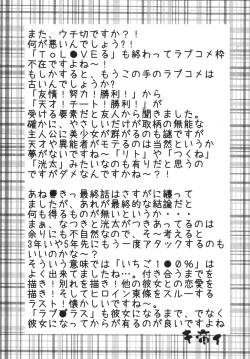 また、ウチ切ですか？！
何が悪いんでしょう?!
「ToL●VEる」も終わってラブコメ枠
不在ですよね～！
もしかすると、もうこの手のラブコメは
古いんでしょうか?
「友情！努力！勝利！」から
「天才！チート！勝利！」が
受ける要素だと友人から聞きました。
確かに、やさしいだけが取柄の無能な
主人公に美少女が群がるのも謎ですが
天才や異能者がモテるのは当然というか
夢がないですね～「リト」や「つくね」
「洸太」みたいなのも有りだと思うの
ですがダメなんですかね～？！
あね●きっ最終話はさすがに纏って
ましたが、あれが最終的な結論だと
何も得るものが無いというか・・・
まぁ、なつきと洸太がつきあってるのは
余りにも不自然なので、そ～考えると
3年いや5年先にもう一度アタックするのも
いいのかな～？
そういう意味では「いちご1●0%」は
よく出来てましたね…。付き合うまでを
描き！別れを描き！他の彼女との恋愛を
描き！そしてヒロイン東條をスルーする
ラスト！懐かしいですね～。
「ラブ●ラス」も彼女になるまで、でなく
彼女になってからが有るのが良いですよね